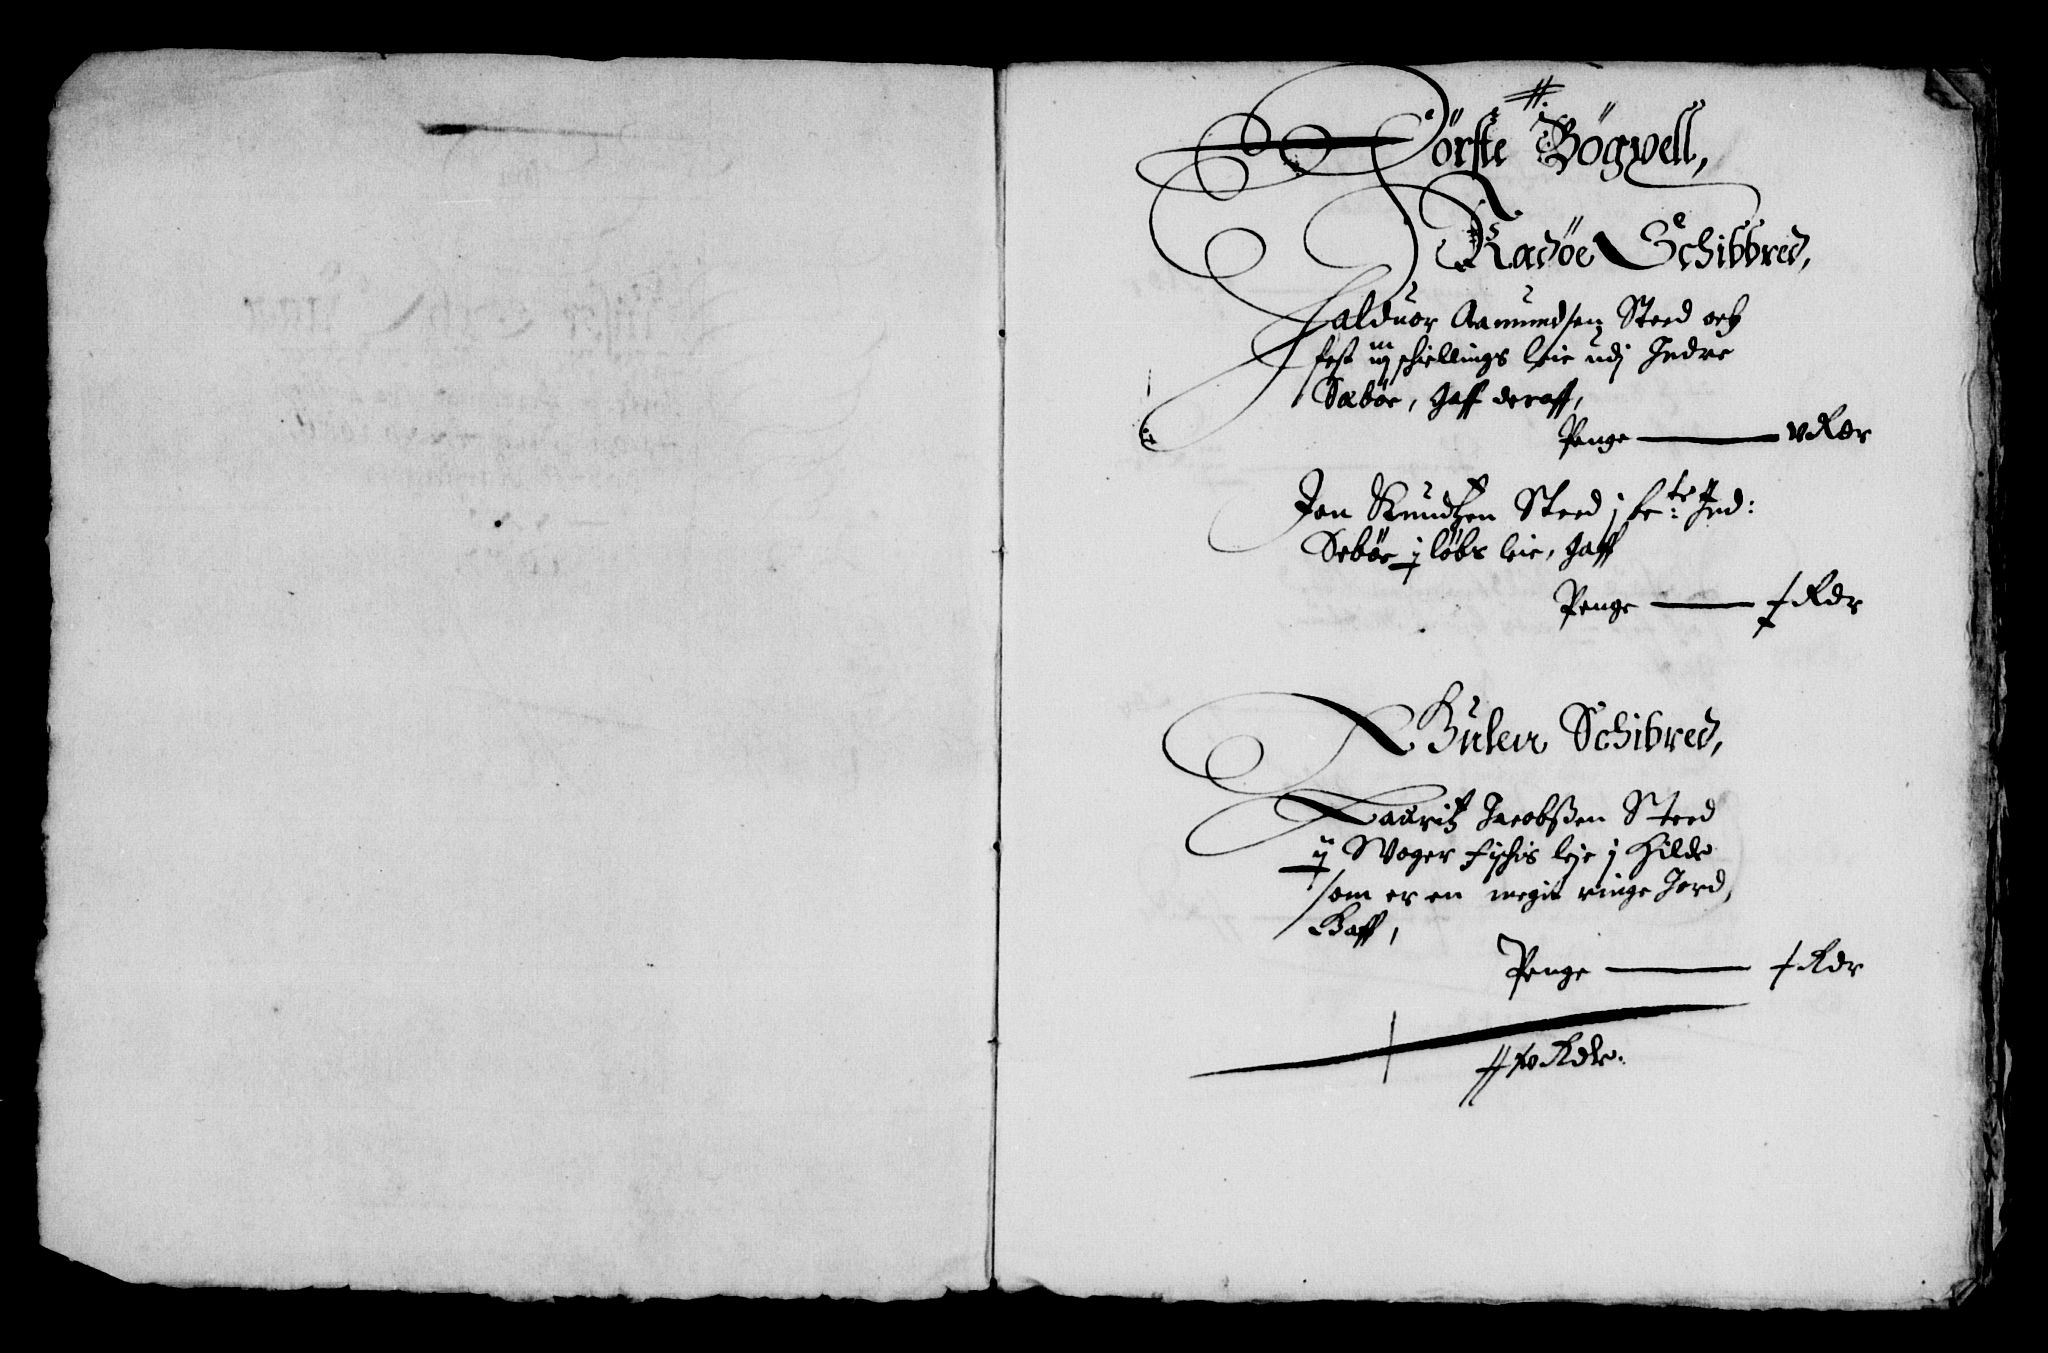 #.
Förste Bögvell,
Radöe Schibbred,
Halduor Aamundsen Sted och
fest iij schillings leie udj Indre
Sæböe, gaff deraff,
Penge — v Rdr
Jon Knudtzen Sted j be:te Ind:
Seböe j löbs leie, gaff
Penge — Rdr
Gulen Schibred,
Lauritz Jacobßen Sted
ij Woger fischis leje j Hilde
som er en megit ringe Jord,
Gaff,
Penge — Rdr
Rdr.